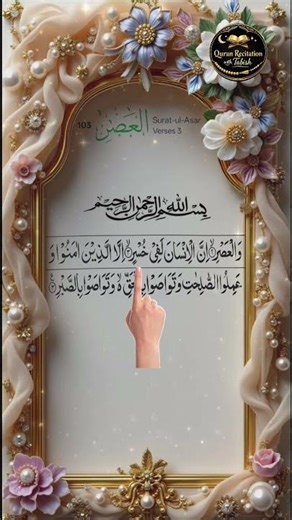 Quran Recitation
with Tabish
103 العصر Surat-ul-Asar
Verses 3
بِسْمِ اللّٰهِ الرَّحْمٰنِ الرَّحِيْمِ
وَالْعَصْرِۙ اِنَّ الْاِنْسَانَ لَفِیْ خُسْرٍۙ اِلَّا الَّذِیْنَ اٰمَنُوْا وَ
عَمِلُوا الصّٰلِحٰتِ وَتَوَاصَوْا بِالْحَقِّ ۙ وَتَوَاصَوْا بِالصَّبْرِ